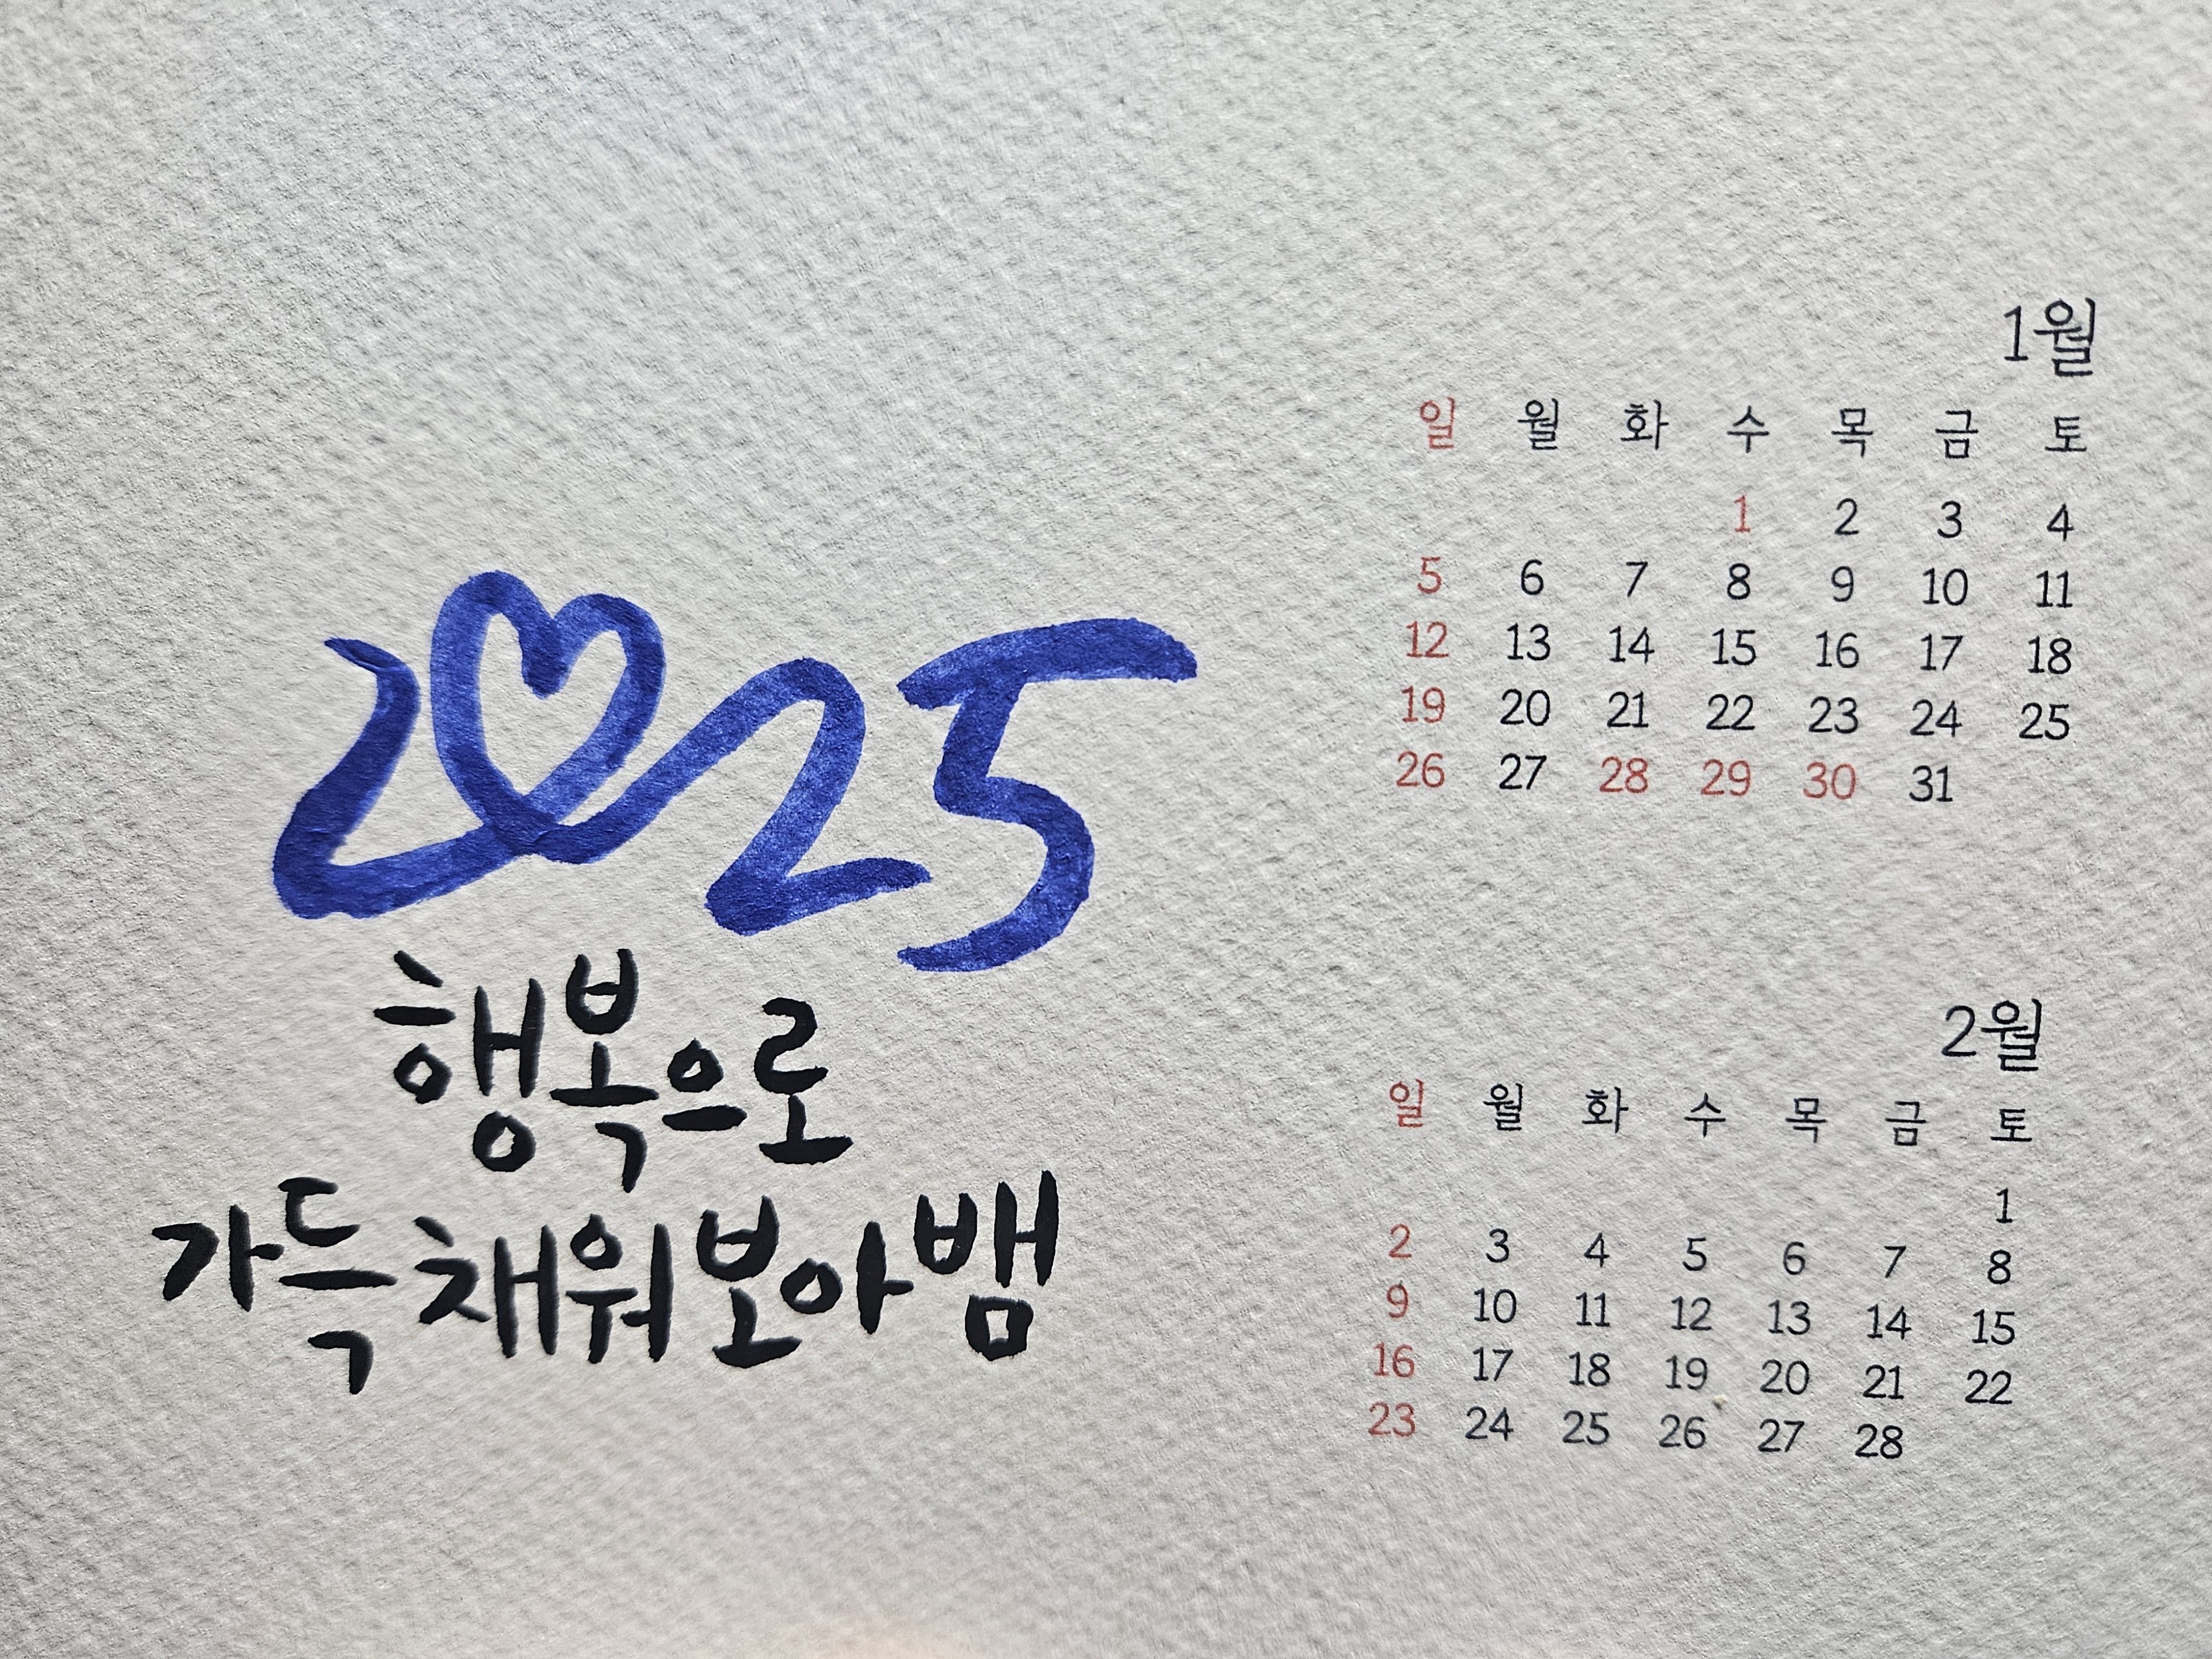 2025
행복으로
가득 채워보아뱀
1월
일 월 화 수 목 금 토
1 2 3 4
5 6 7 8 9 10 11
12 13 14 15 16 17 18
19 20 21 22 23 24 25
26 27 28 29 30 31
2월
일 월 화 수 목 금 토
1
2 3 4 5 6 7 8
9 10 11 12 13 14 15
16 17 18 19 20 21 22
23 24 25 26 27 28